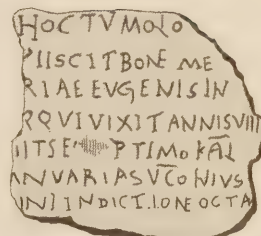 HOC TVMOLO
IISCIT BONE ME
RIAE EVGENIS IN
RQVI VIXIT ANNIS VIIII
IIT SE PTIMO KAL
ANVARIAS VCO NIVS
IN INDICTIONE OCTA